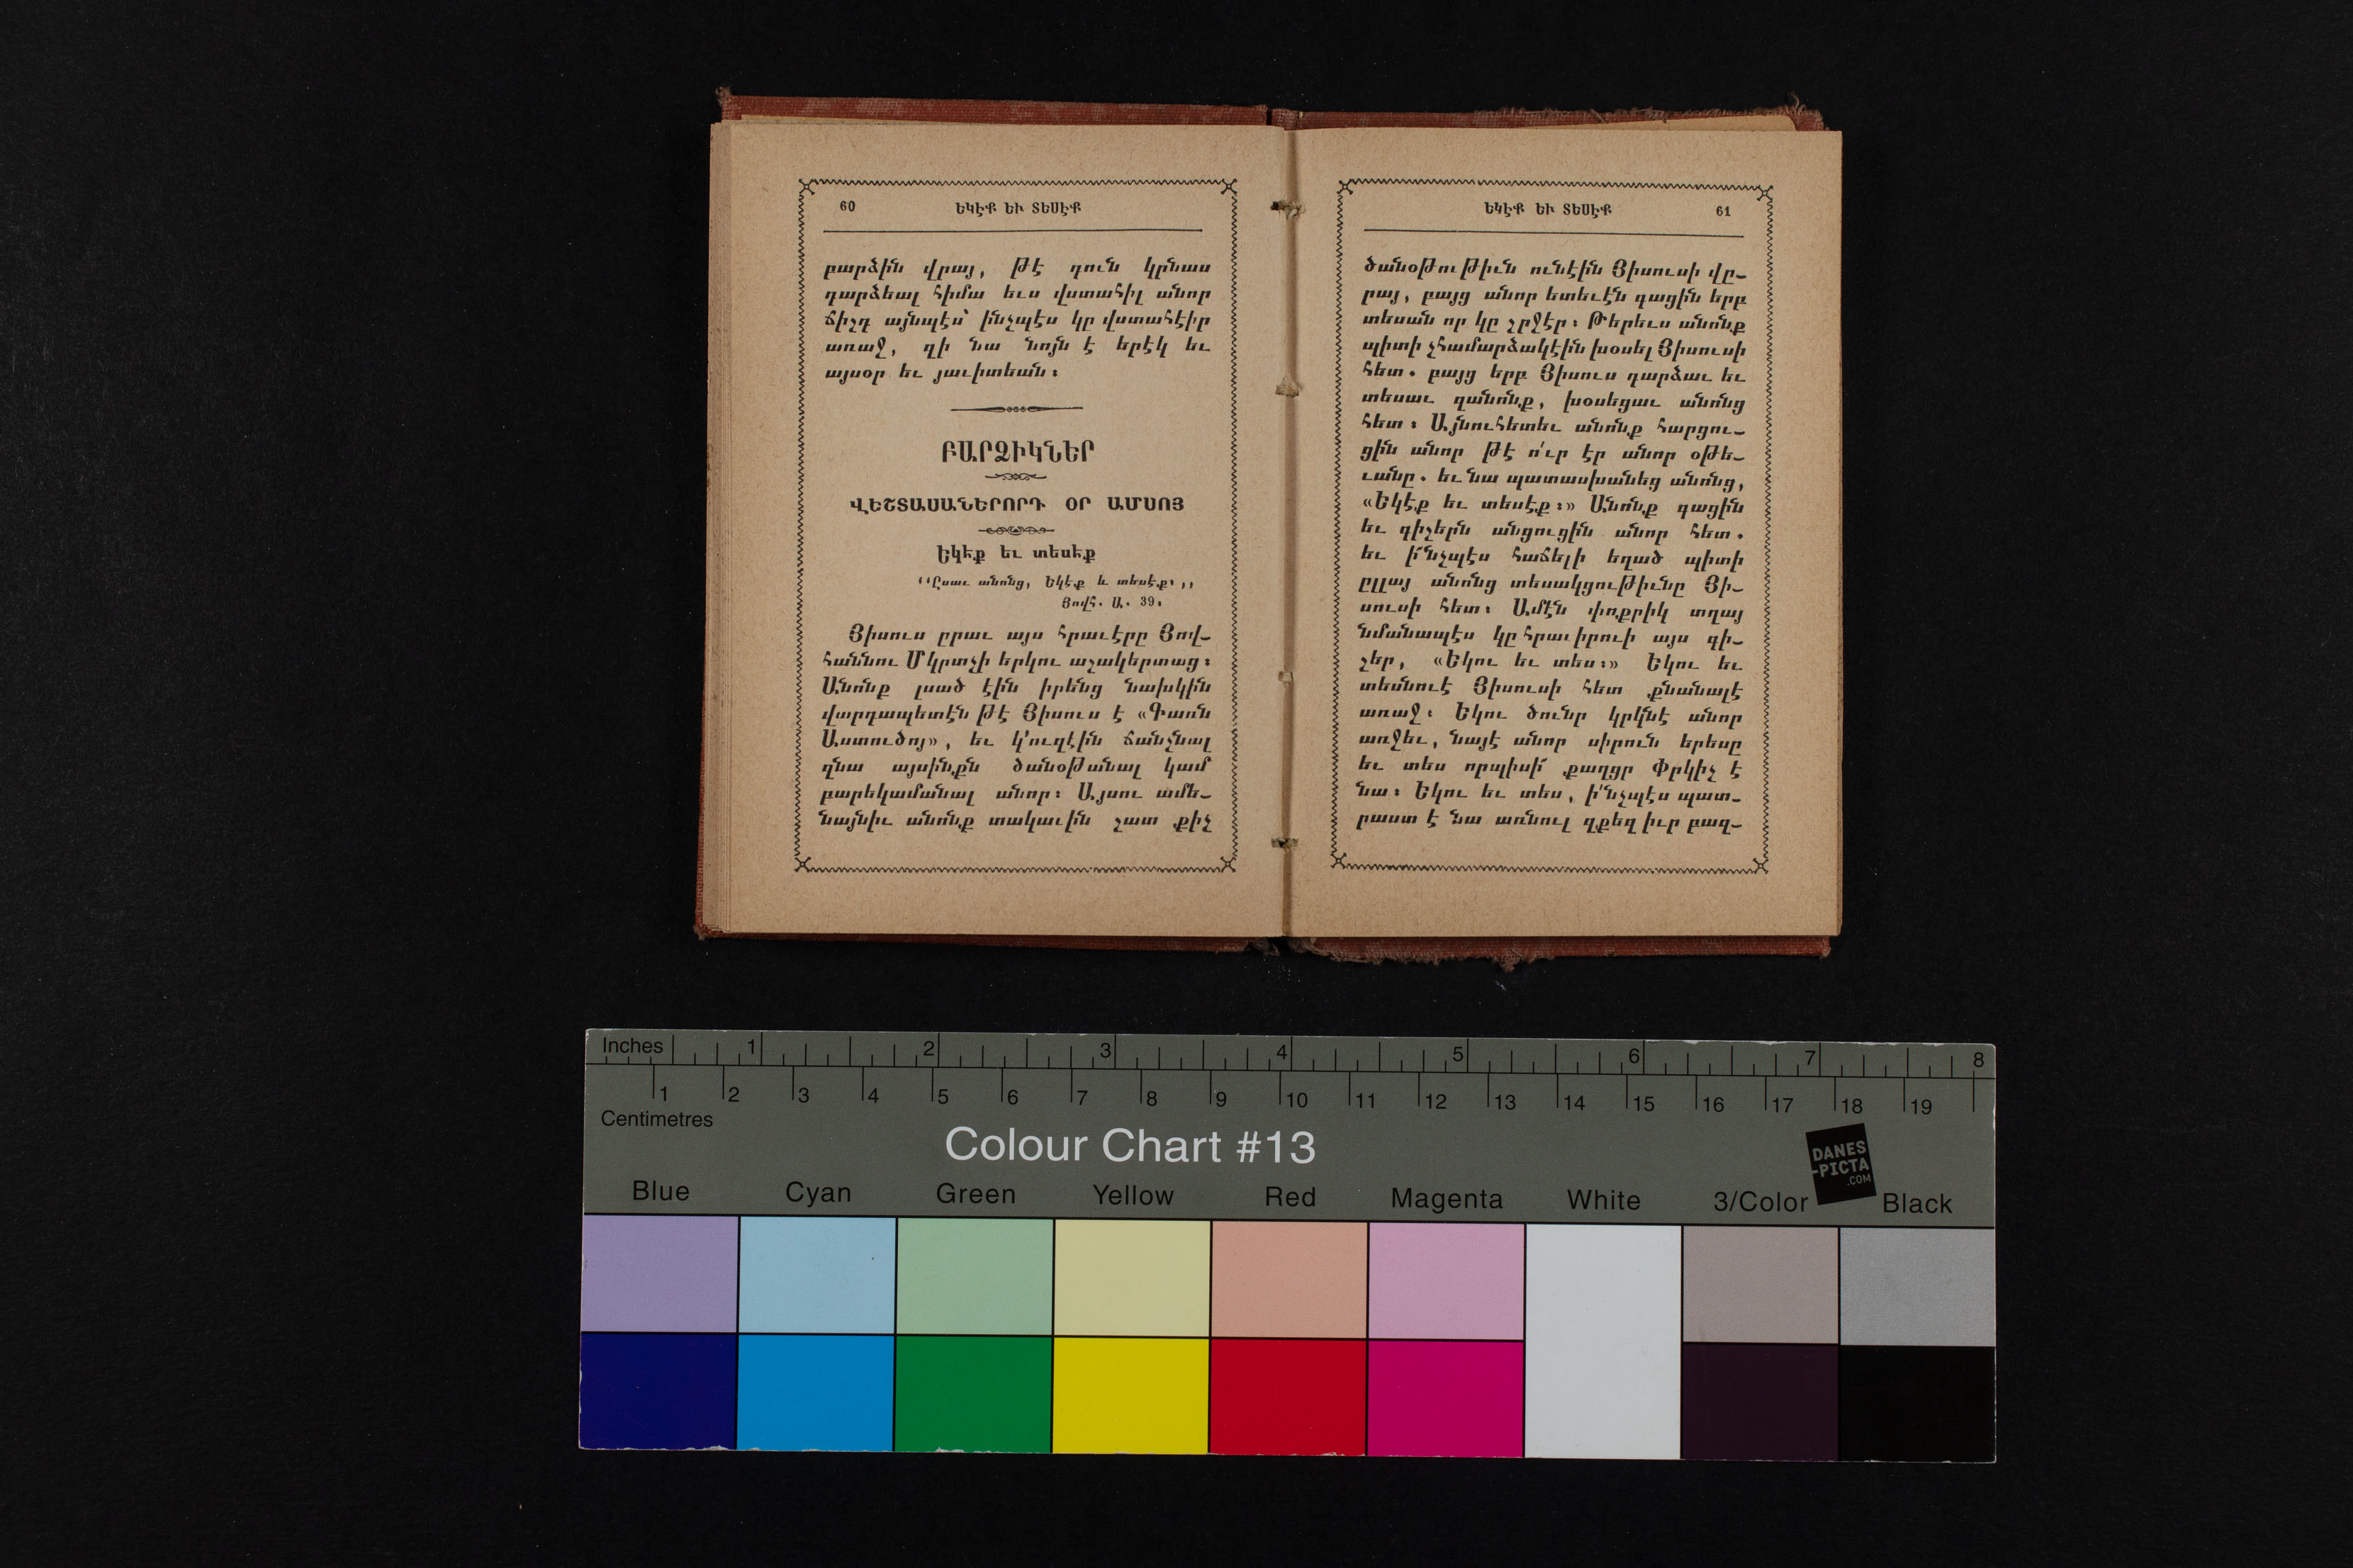 60
ԵԿԷՔ ԵՒ ՏԵՍԷՔ
բարձին վրայ, թէ դուն կրնաս
դարձեալ հիմա եւս վստահիլ անոր
ճիշդ այնպէս՝ ինչպէս կը վստահէիր
առաջ, զի նա նոյն է երէկ եւ
այսօր եւ յաւիտեան։
ԲԱՐՁԻԿՆԵՐ
ՎԵՇՏԱՍԱՆԵՐՈՐԴ ՕՐ ԱՄՍՈՅ
Եկէք եւ տեսէք
‘‘Ըսաւ անոնց, Եկէք և տեսէք։,,
Յովհ. Ա. 39։
Յիսուս ըրաւ այս հրաւէրը Յով-
հաննու Մկրտչի երկու աշակերտաց։
Անոնք լսած էին իրենց նախկին
վարդապետէն թէ Յիսուս է «Գառն
Աստուծոյ», եւ կ՚ուզէին ճանչնալ
զնա այսինքն ծանօթանալ կամ
բարեկամանալ անոր։ Այսու ամե-
նայնիւ անոնք տակաւին շատ քիչ
ԵԿԷՔ ԵՒ ՏԵՍԷՔ
61
ծանօթութիւն ունէին Յիսուսի վը-
րայ, բայց անոր ետեւէն գացին երբ
տեսան որ կը շրջէր։ Թերեւս անոնք
պիտի չհամարձակէին խօսել Յիսուսի
հետ. բայց երբ Յիսուս դարձաւ եւ
տեսաւ զանոնք, խօսեցաւ անոնց
հետ։ Այնուհետեւ անոնք հարցու-
ցին անոր թէ ո՛ւր էր անոր օթե-
ւանը. եւ նա պատասխանեց անոնց,
«Եկէք եւ տեսէք։» Անոնք գացին
եւ գիշերն անցուցին անոր հետ.
եւ ի՜նչպէս հաճելի եղած պիտի
ըլլայ անոնց տեսակցութիւնը Յի-
սուսի հետ։ Ամէն փոքրիկ տղայ
նմանապէս կը հրաւիրուի այս գի-
շեր, «Եկու եւ տես։» Եկու եւ
տեսնուէ Յիսուսի հետ քնանալէ
առաջ։ Եկու ծունր կրկնէ անոր
առջեւ, նայէ անոր սիրուն երեսը
եւ տես որպիսի՜ քաղցր Փրկիչ է
նա։ Եկու եւ տես, ի՛նչպէս պատ-
րաստ է նա առնուլ զքեզ իւր բազ-
Inches 1 2 3 4 5 6 7 8
1 2 3 4 5 6 7 8 9 10 11 12 13 14 15 16 17 18 19
Centimetres
Colour Chart #13
DANES
-PICTA
.COM
Blue Cyan Green Yellow Red Magenta White 3/Color Black